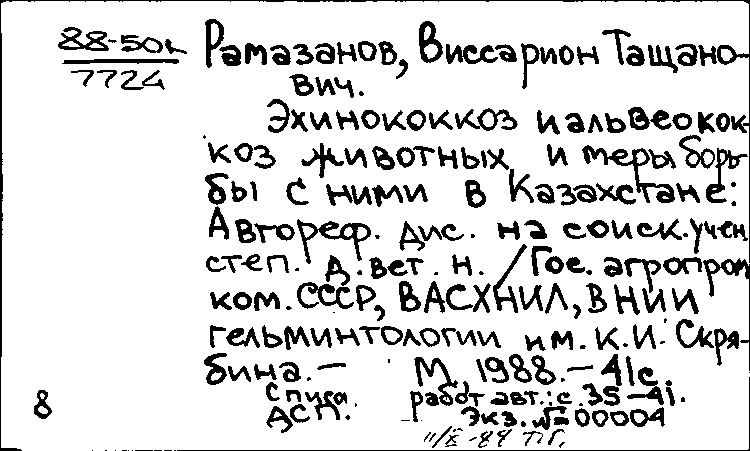 88-50к
7724
Рамазанов, Виссарион Тащано-
вич.
Эхинококкоз и альвеокок-
коз животных и меры борь-
бы с ними в Казахстане:
Автореф. дис. на соиск. учен.
степ. д. вет. н. / Гос. агропром.
ком. СССР, ВАСХНИЛ, ВНИИ
гельминтологии им. К.И. Скря-
бина. – М., 1988. – 41 с.
Список работ авт.: с. 35-41.
ДСП. Экз. № 00004
8